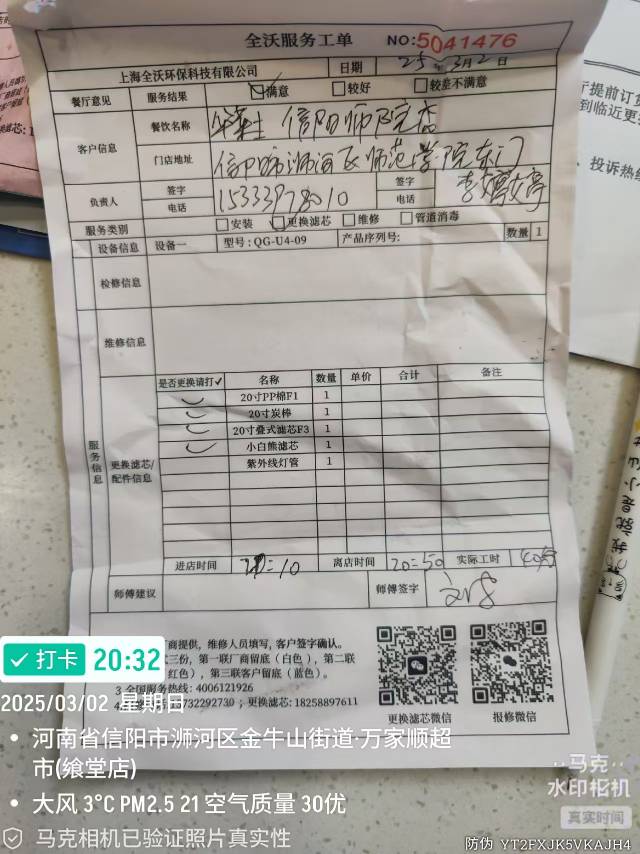 全沃服务工单 NO:5041476
上海全沃环保科技有限公司 日期 25年3月2日
餐厅意见 服务结果 满意 较好 较差不满意
客户信息 餐饮名称 华莱士 信阳师院店
门店地址 信阳师浉河区师范学院东门
负责人 签字 电话 15333978010 签字 电话
服务类别 安装 更换滤芯 维修 管道消毒
设备信息 设备一 型号:QG-U4-09 产品序列号: 数量 1
检修信息
维修信息
服务信息
更换滤芯/配件信息
是否更换请打✓ 名称 数量 单价 合计 备注
20寸PP棉F1 1
20寸炭棒 1
20寸叠式滤芯F3 1
小白熊滤芯 1
紫外线灯管 1
进店时间 20:10 离店时间 20:50 实际工时 40分
师傅建议 师傅签字
商提供，维修人员填写，客户签字确认。
三份，第一联厂商留底（白色），第二联
红色），第三联客户留底（蓝色）。
3.全国服务热线：4006121926
3732292730；更换滤芯：18258897611
更换滤芯微信 报修微信
厅提前订货
到临近更
投诉热线
我就是小
打卡 20:32
2025/03/02 星期日
河南省信阳市浉河区金牛山街道·万家顺超
市(飨堂店)
大风 3°C PM2.5 21 空气质量 30优
马克相机已验证照片真实性
马克
水印相机
真实时间
防伪 YT2FXJK5VKAJH4